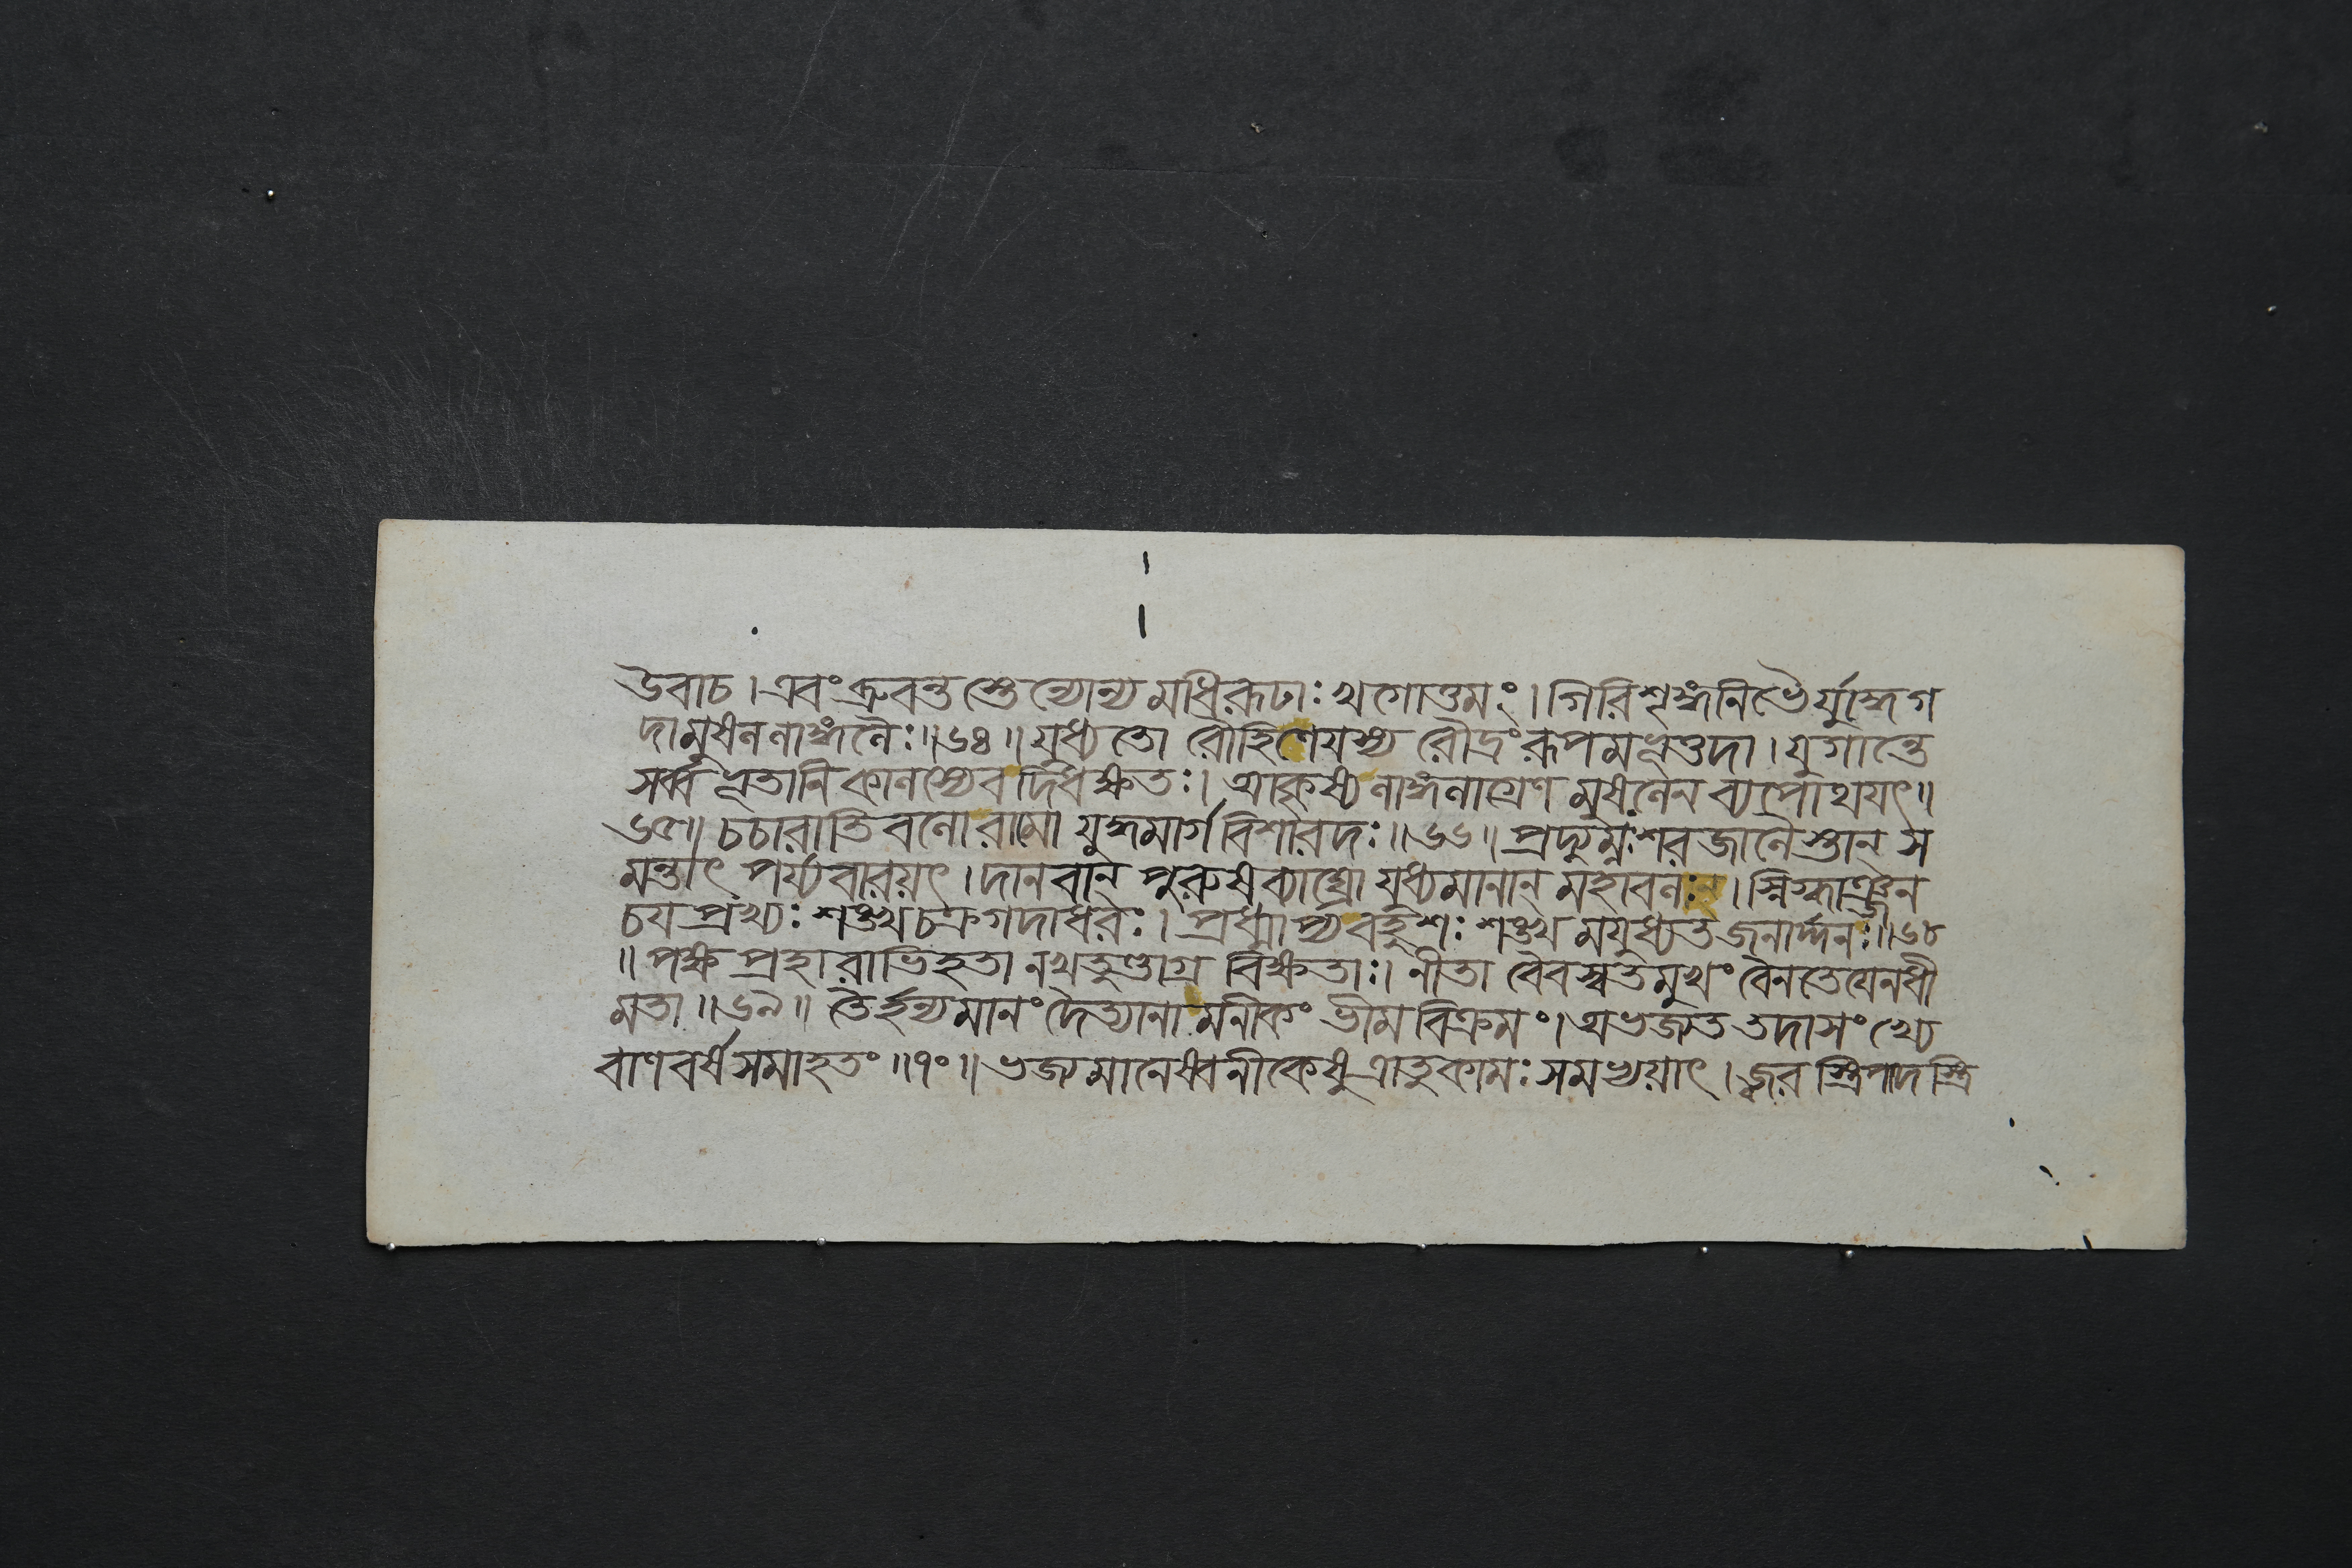 উবাচ । এবং ব্রুবন্ত স্তে ন্যোন্য মধিরূঢাঃ খগোত্তমং । গিরিশৃঙ্গনিভৈ র্যুদ্ধগ
দামুষললাঙ্গলৈঃ ॥ ৬৪ ॥ যুধ্যতো রৌহিণেযস্য রৌদ্রং রূপমভূত্তদা । যুগান্তে
সর্ব্বভূতানি কালস্যেব দিধক্ষতঃ । আকৃষ্য লাঙ্গলাগ্রেণ মুষলেন ব্যপোথযৎ ॥
৬৫ ॥ চচারাতি বলো রামো যুদ্ধমার্গ বিশারদঃ ॥ ৬৬ ॥ প্রদ্যুম্নঃ শরজালৈ স্তান্ স
মন্তাৎ পর্য্যবারয়ৎ । দানবান্ পুরুষব্যাঘ্রো যুধ্যমানান্ মহাবলঃ । স্নিগ্ধাঞ্জন
চয প্রখ্যঃ শঙ্খচক্রগদাধরঃ । প্রধ্মাপ্য বহুশঃ শঙ্খ মযুধ্যত জনার্দ্দনঃ ॥ ৬৮
॥ পক্ষ প্রহারাভিহতা নখতুণ্ডাগ্র বিক্ষতাঃ । নীতা বৈবস্বতমুখং বৈনতেযেন ধী
মতা ॥ ৬৯ ॥ তৈর্হন্যমানং দৈত্যানা মনীকং ভীম বিক্রমং । অভজ্যত তদা সংখ্যে
বাণবর্ষ সমাহতং ॥ ৭০ ॥ ভজ্যমানেষ্বনীকেষু ত্রাতুকামঃ সমভ্যয়াৎ । জ্বর স্ত্রিপাদ স্ত্রি